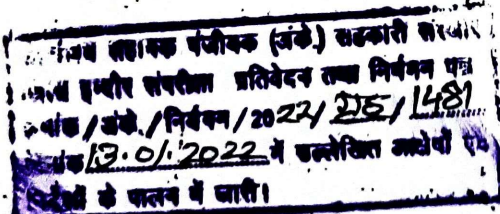 सहायक पंजीयक (अंके.) सहकारी
इन्दौर संपरीक्षा प्रतिवेदन तथा निर्गमन पत्र
/अंके./निर्गमन/2022/ /1481
13.01.2022 में उल्लेखित आक्षेपों एवं
के पालन में जारी।